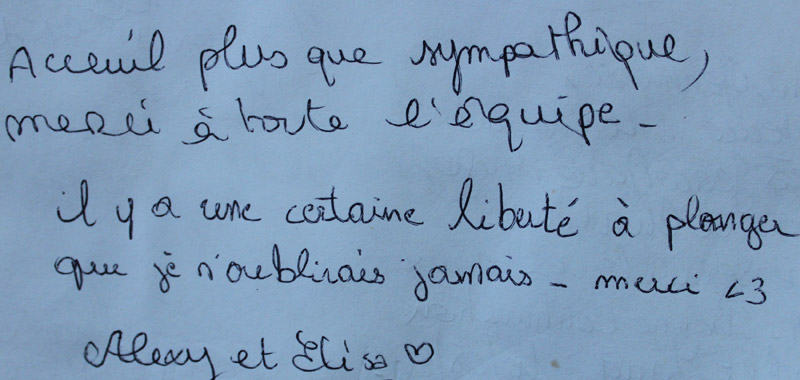 Acceuil plus que sympathique,
merci à toute l'équipe -
il y a une certaine liberté à plonger
que je n'oublirais jamais - merci <3
Alexy et Elisa ♡